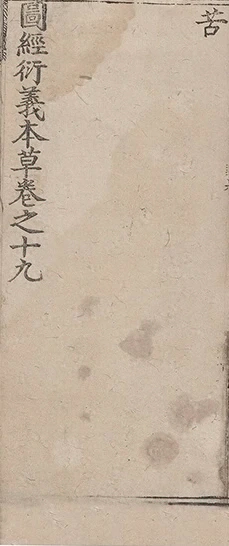 苦
圖經衍義本草卷之十九